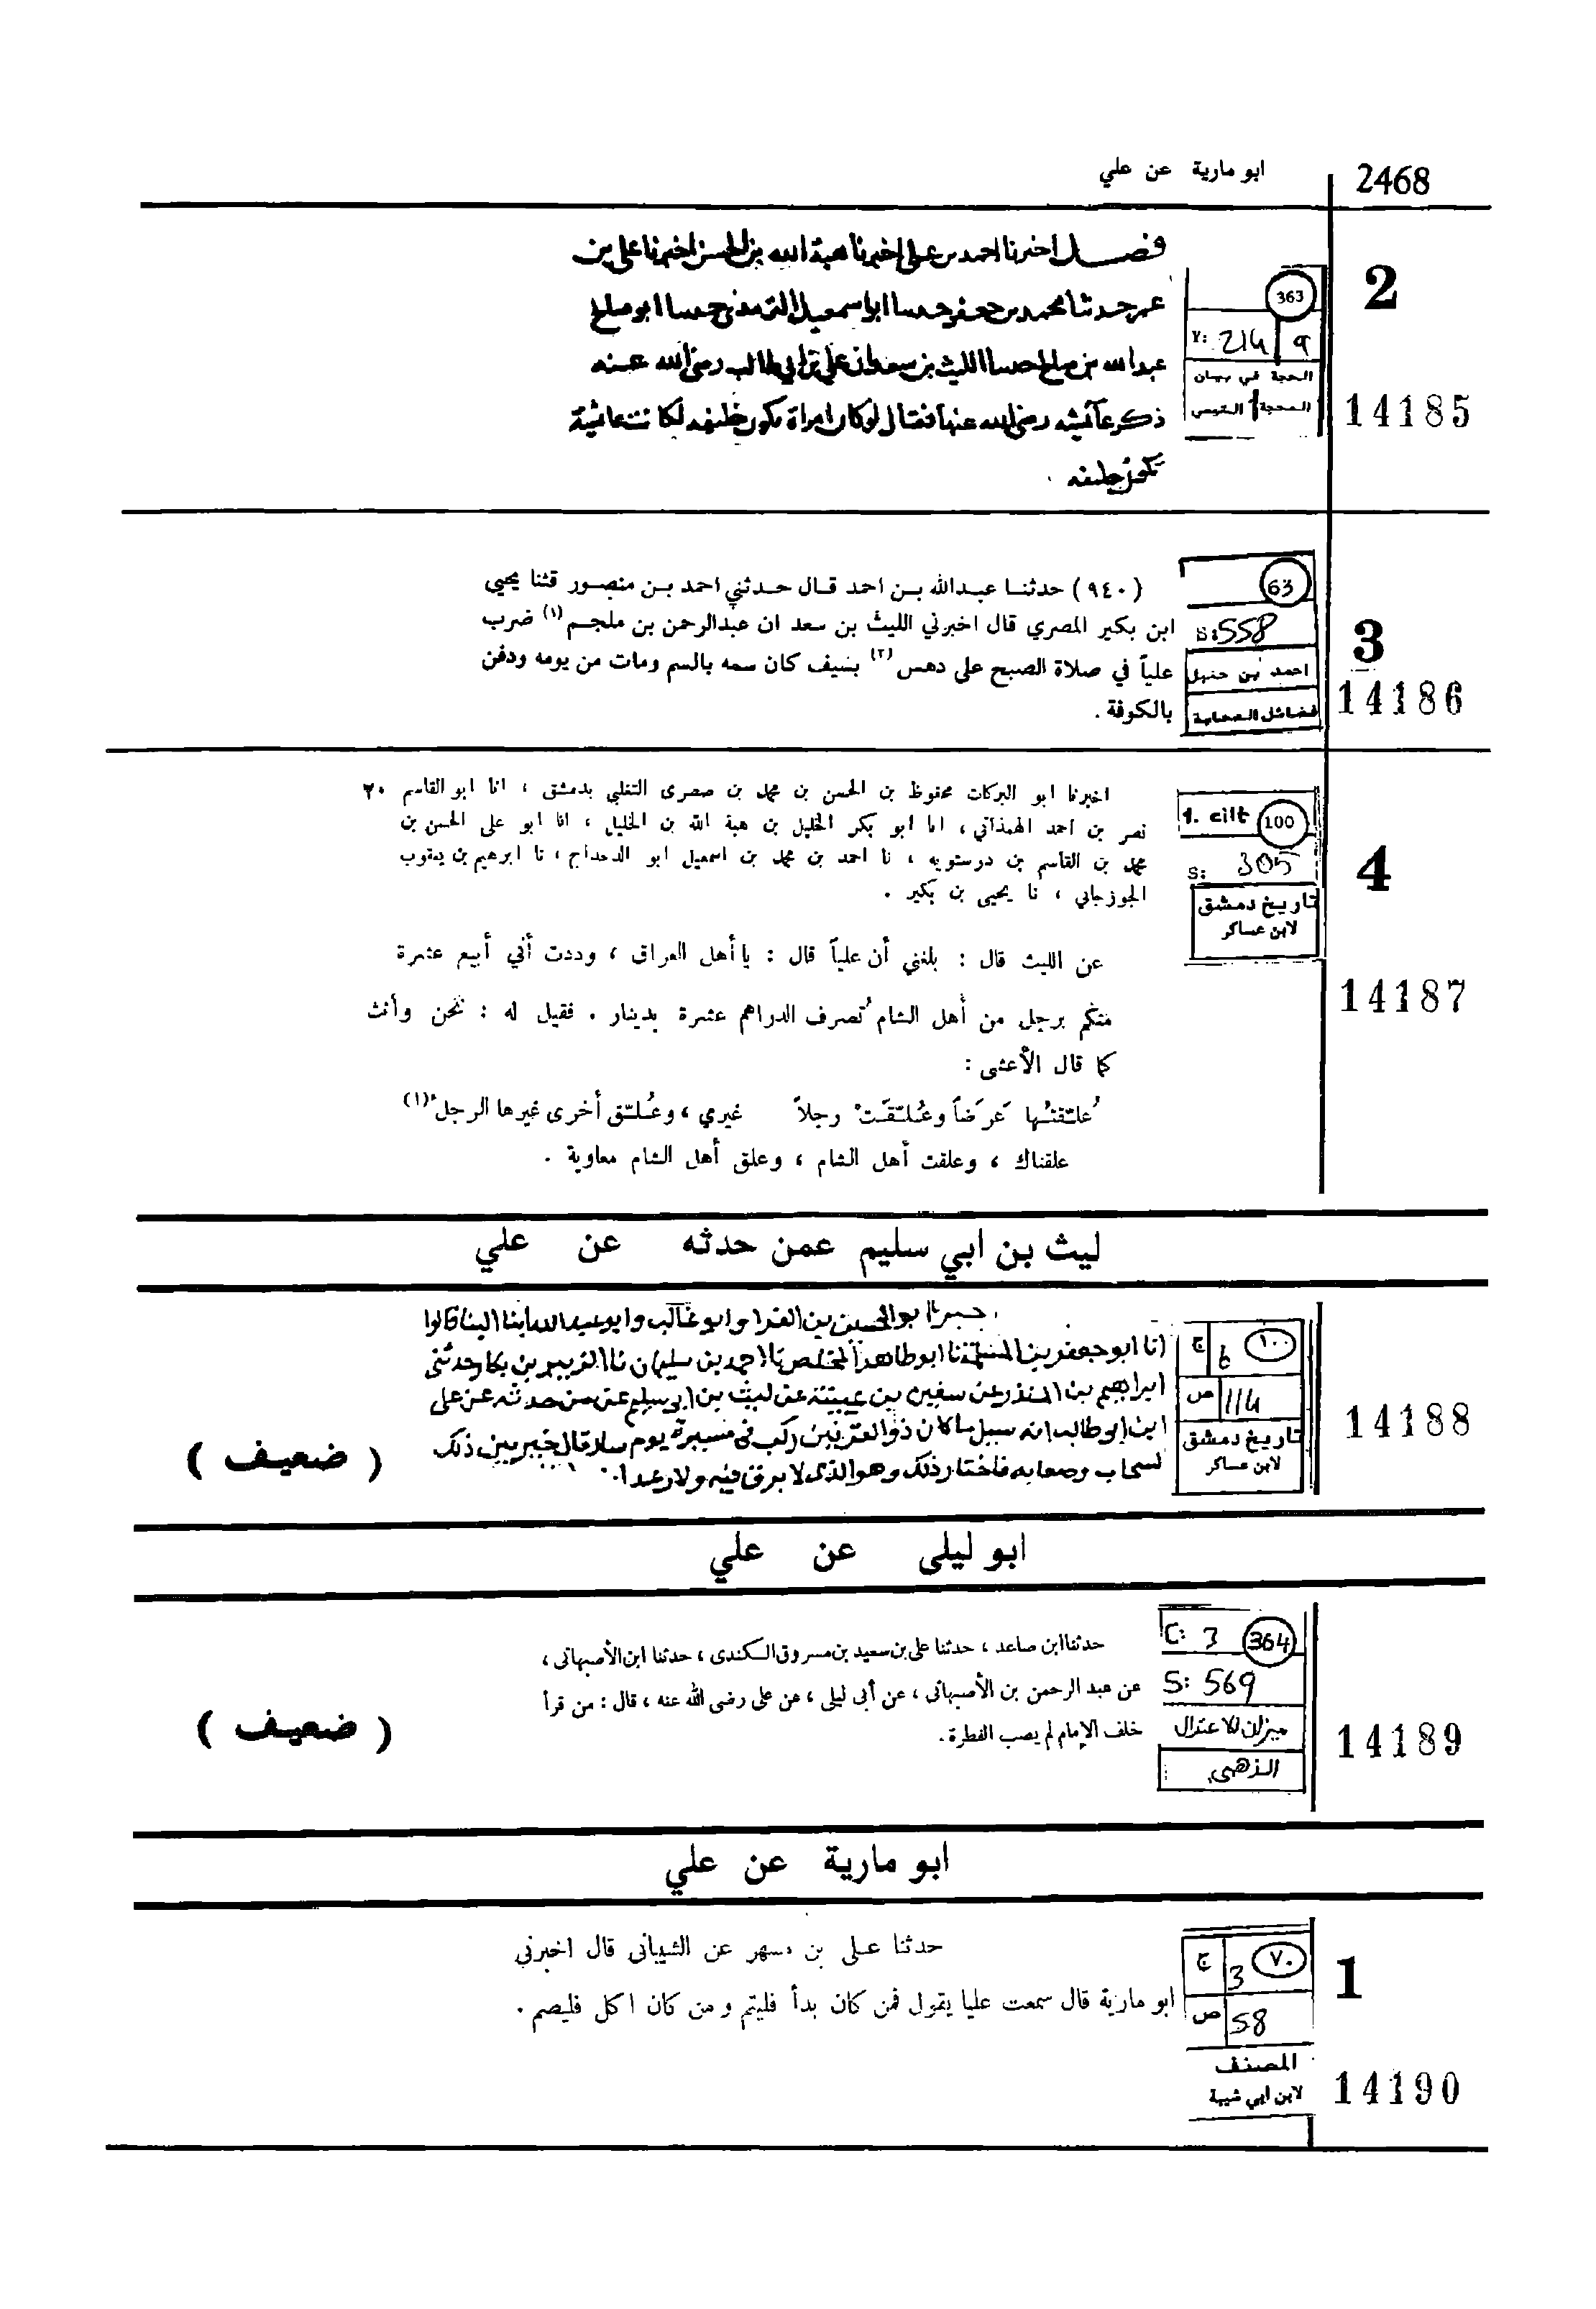 2468
ابو مارية عن علي
2
363
٧: 214 9
الحجة في بيان
المحجة التيمي
14185
فصل اخبرنا احمد بن علي اخبرنا هبة الله بن الحسن اخبرنا علي بن
عمر حدثنا محمد بن جعفر حدثنا ابو اسمعيل الترمذي حدثنا ابو صالح
عبد الله بن صالح حدثنا الليث بن سعد ان علي بن ابي طالب رضي الله عنه
ذكر عائشه رضي الله عنها فقال لو كان امراة تكون خليفه لكانت عائشة
تكون خليفه .
3
63
S: 558
احمد بن حنبل
فضائل الصحابة
14186
(٩٤٠) حدثنا عبدالله بن احمد قال حدثني احمد بن منصور قثنا يحيي
ابن بكير المصري قال اخبرني الليث بن سعد ان عبدالرحمن بن ملجم (١) ضرب
علياً في صلاة الصبح على دهس (٢) بسيف كان سمه بالسم ومات من يومه ودفن
بالكوفة .
4
1. cilt 100
S: 305
تاريخ دمشق
لابن عساكر
14187
اخبرنا ابو البركات محفوظ بن الحسن بن محمد بن صصرى التغلبي بدمشق ، انا ابو القاسم ٢٠
نصر بن احمد الهمذاني ، انا ابو بكر الخليل بن هبة الله بن الخليل ، انا ابو على الحسن بن
محمد بن القاسم بن درستويه ، نا احمد بن محمد بن اسمعيل ابو الدحداح ، نا ابرهيم بن يعقوب
الجوزجاني ، نا يحيى بن بكير .
عن الليث قال : بلغني أن علياً قال : يا أهل العراق ، وددت أني أبيع عشرة
منكم برجل من أهل الشام تُصرف الدراهم عشرة بدينار . فقيل له : نحن وأنت
كما قال الأعشى :
عُلِّقتُها عَرَضاً وعُلِّقَتْ رجلاً غيري ، وعُلِّق أخرى غيرها الرجل (١)
علقناك ، وعلقت أهل الشام ، وعلق أهل الشام معاوية .
ليث بن ابي سليم عمن حدثه عن علي
١٠٠ 6 ج
114 ص
تاريخ دمشق
لابن عساكر
14188
ابو الحسين بن الفرا وابو غالب وابو عبد الله ابنا البنا قالوا
انا ابو جعفر بن المسلمة نا ابو طاهر المخلص نا احمد بن سليمان نا الزبير بن بكار حدثنى
ابراهيم بن المنذر عن سفين بن عيينة عن ليث بن ابي سليم عن من حدثه عن على
ابن ابي طالب انه سيل ما كان ذو القرنين ركب فى مسيرة يوم سار قال خير بين ذلك
السحاب وصعابه فاختار ذلك وهو الذى لا برق فيه ولا رعد
( ضعيف )
ابو ليلى عن علي
C: 3 364
S: 569
ميزان الاعتدال
الذهبي
14189
حدثنا ابن صاعد ، حدثنا على بن سعيد بن مسروق الكندى ، حدثنا ابن الأصبهانى ،
عن عبد الرحمن بن الأصبهانى ، عن أبى ليلى ، عن على رضى الله عنه ، قال : من قرأ
خلف الإمام لم يصب الفطرة .
( ضعيف )
ابو مارية عن علي
1
٧٠ 3 ج
58 ص
المصنف
لابن ابي شيبة
14190
حدثنا على بن مسهر عن الشيبانى قال اخبرنى
ابو مارية قال سمعت عليا يقول فمن كان بدأ فليتم و من كان اكل فليصم .